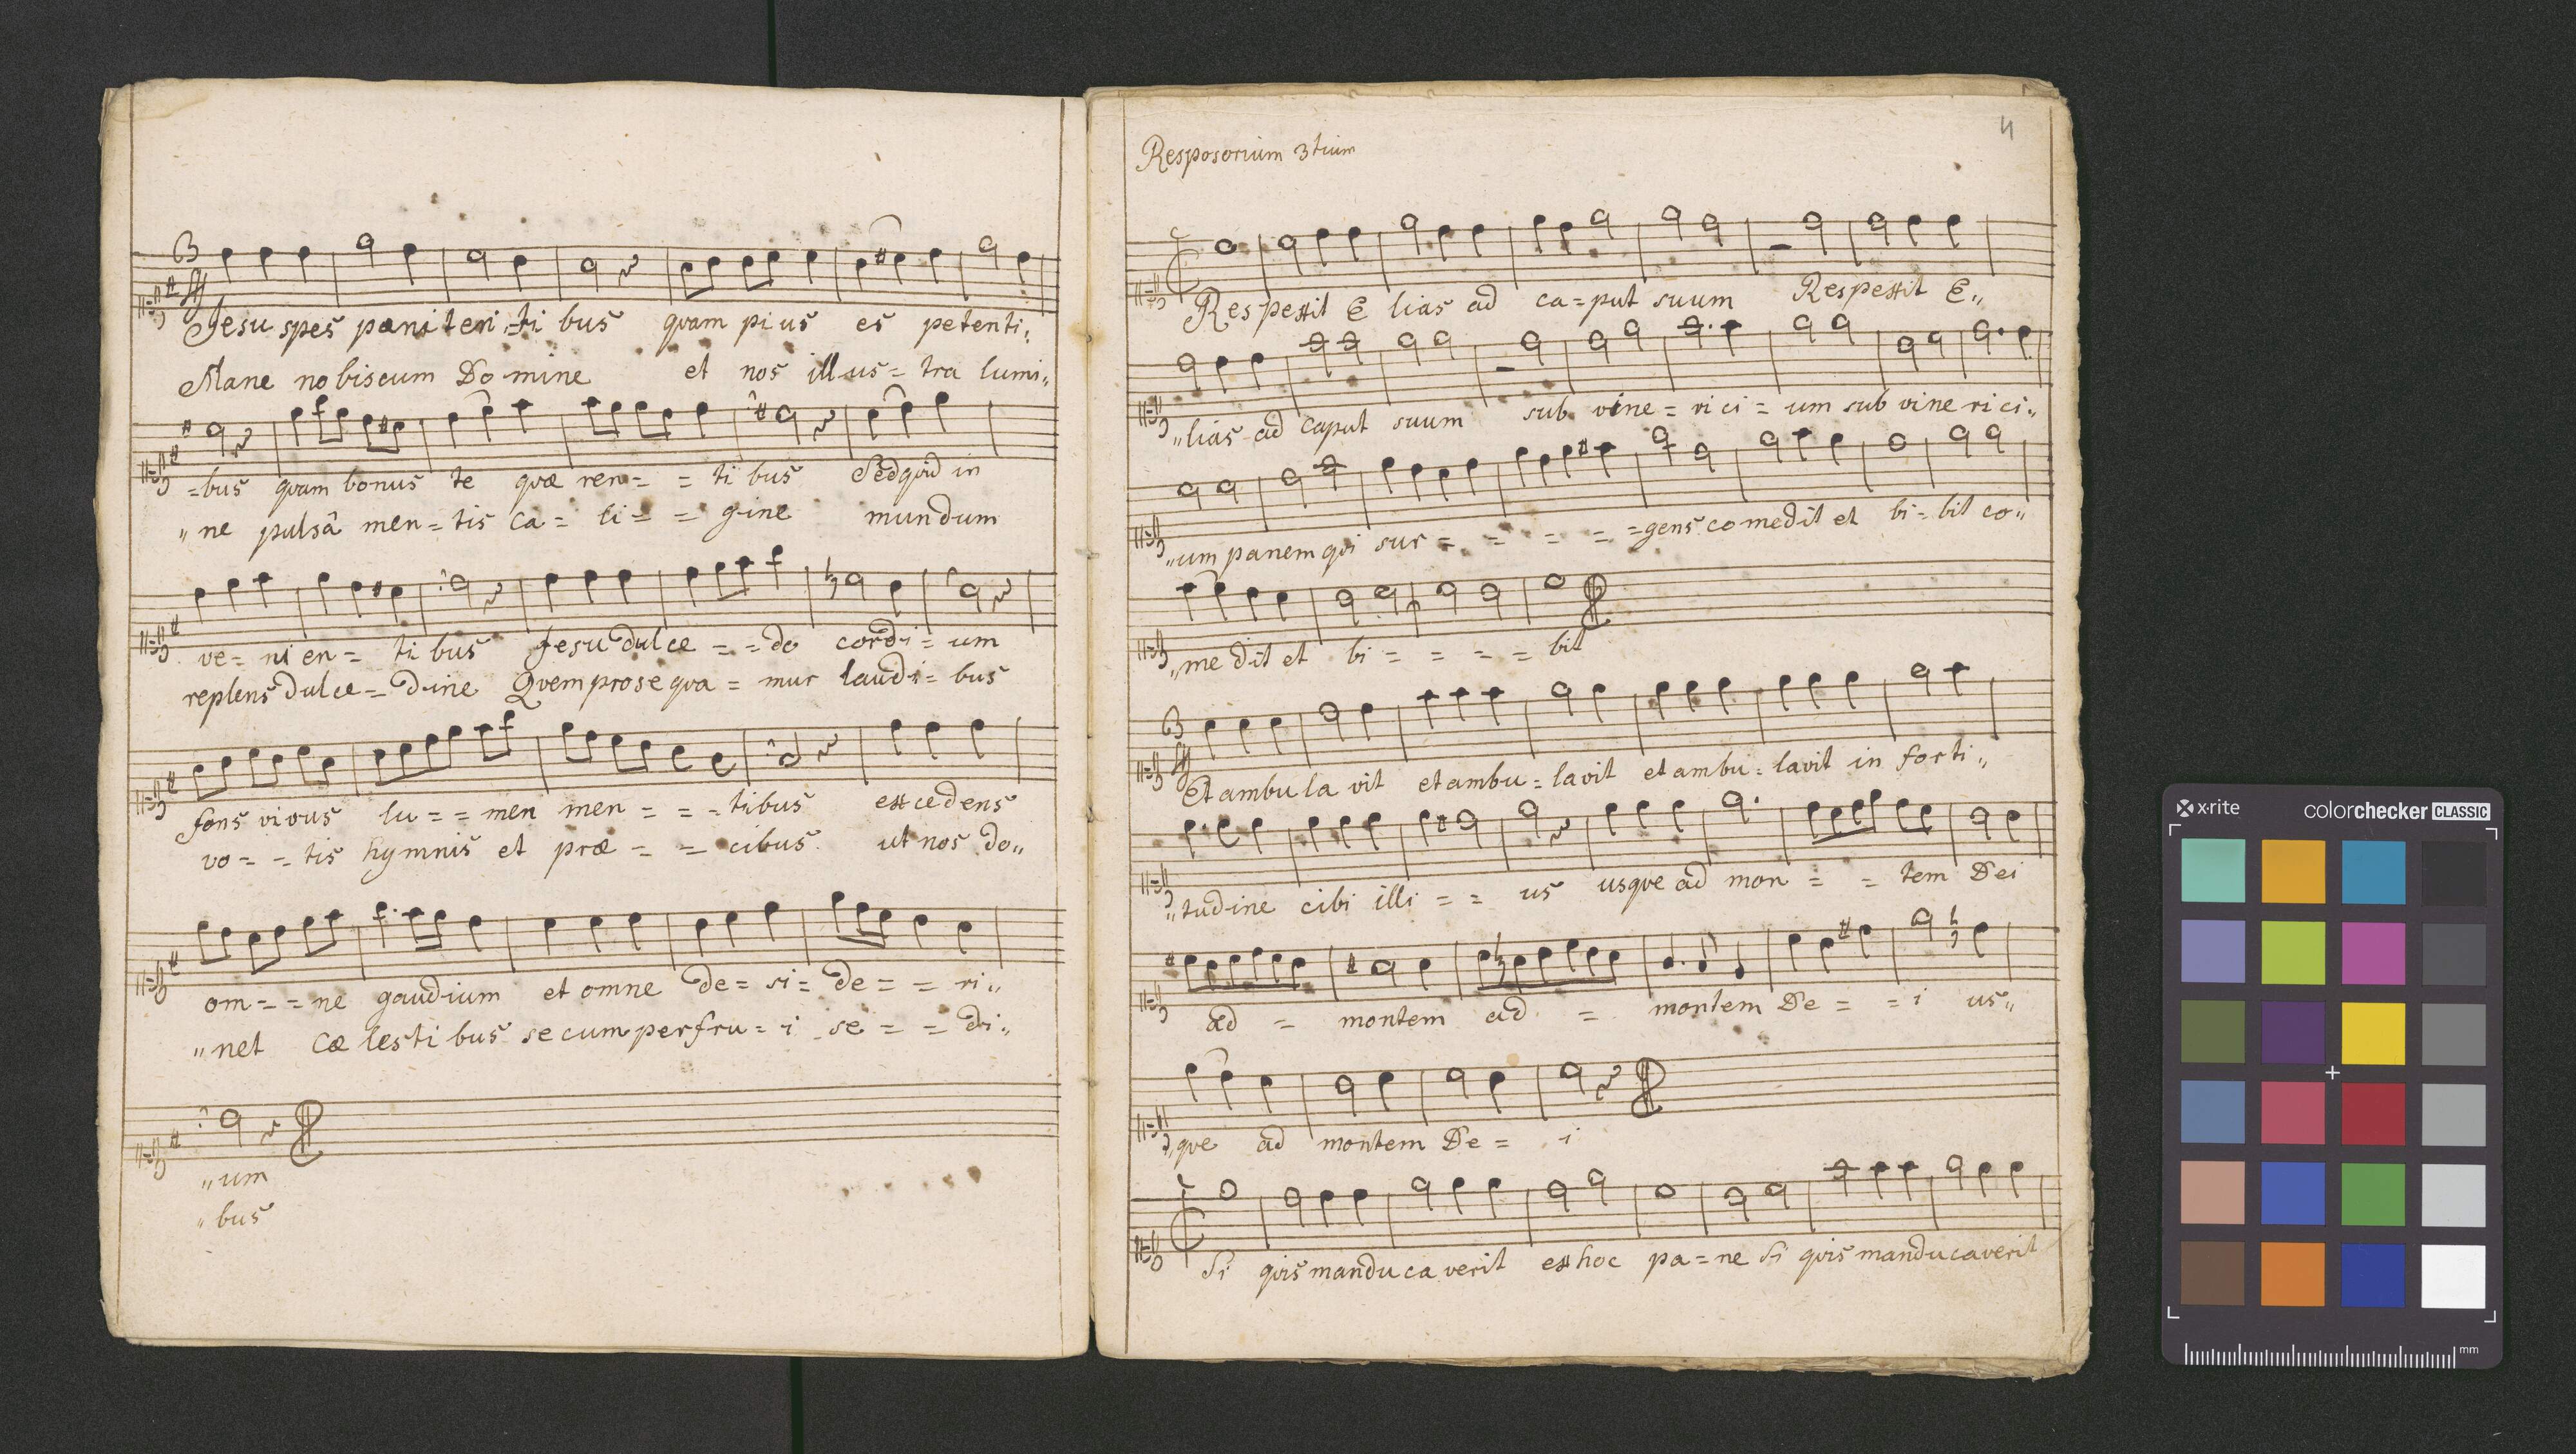 Jesu spes pæni ten =ti bus quam pi us es petenti„
Mane no biscum Do mine et nos ill us = tra lumi„
=bus quam bonus te quæ ren = = ti bus Sed quid in
„ ne pulsâ men = tis ca = li = = gine mundum
ve = ni en = ti bus Jesu dul ce = = do cordi = um
replens dulce = dine Quem prose qva = mur laudi = bus
fons vivus lu = = men men = = = tibus excedens
vo = = tis hymnis et præ = = cibus. ut nos do„
om = = ne gaudium et omne de = si = de = = ri„
„ net Cæ lesti bus se cum perfru = i se = = di„
„ um
„ bus
4
Resposorium 3tium
Respexit E lias ad ca = put suum Respexit E„
„lias ad caput suum sub vine = ri ci = um sub vine ri ci„
„um panem qvi sur = = = = =gens comedit et bi = bit co„
„me dit et bi = = = = bit
Et ambu la vit et ambu = lavit et ambu = lavit in forti„
„tudine cibi illi = = us usqve ad mon = = tem Dei
ad = montem ad = montem De = = i us„
„qve ad montem De = i
Si qvis mandu ca verit ex hoc pa = ne Si qvis manducaverit
x·rite
colorchecker CLASSIC
mm